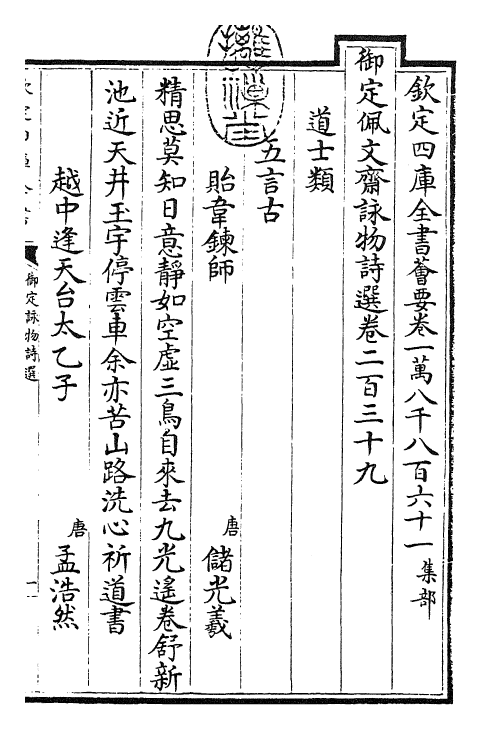 欽定四庫全書薈要卷一萬八千八百六十一集部
御定佩文齋詠物詩選卷二百三十九
道士類
五言古
貽韋鍊師 唐儲光羲
精思莫知日意靜如空虛三鳥自來去九光遙卷舒新
池近天井玉宇停雲車余亦苦山路洗心祈道書
越中逢天台太乙子 唐孟浩然
御定詠物詩選
一